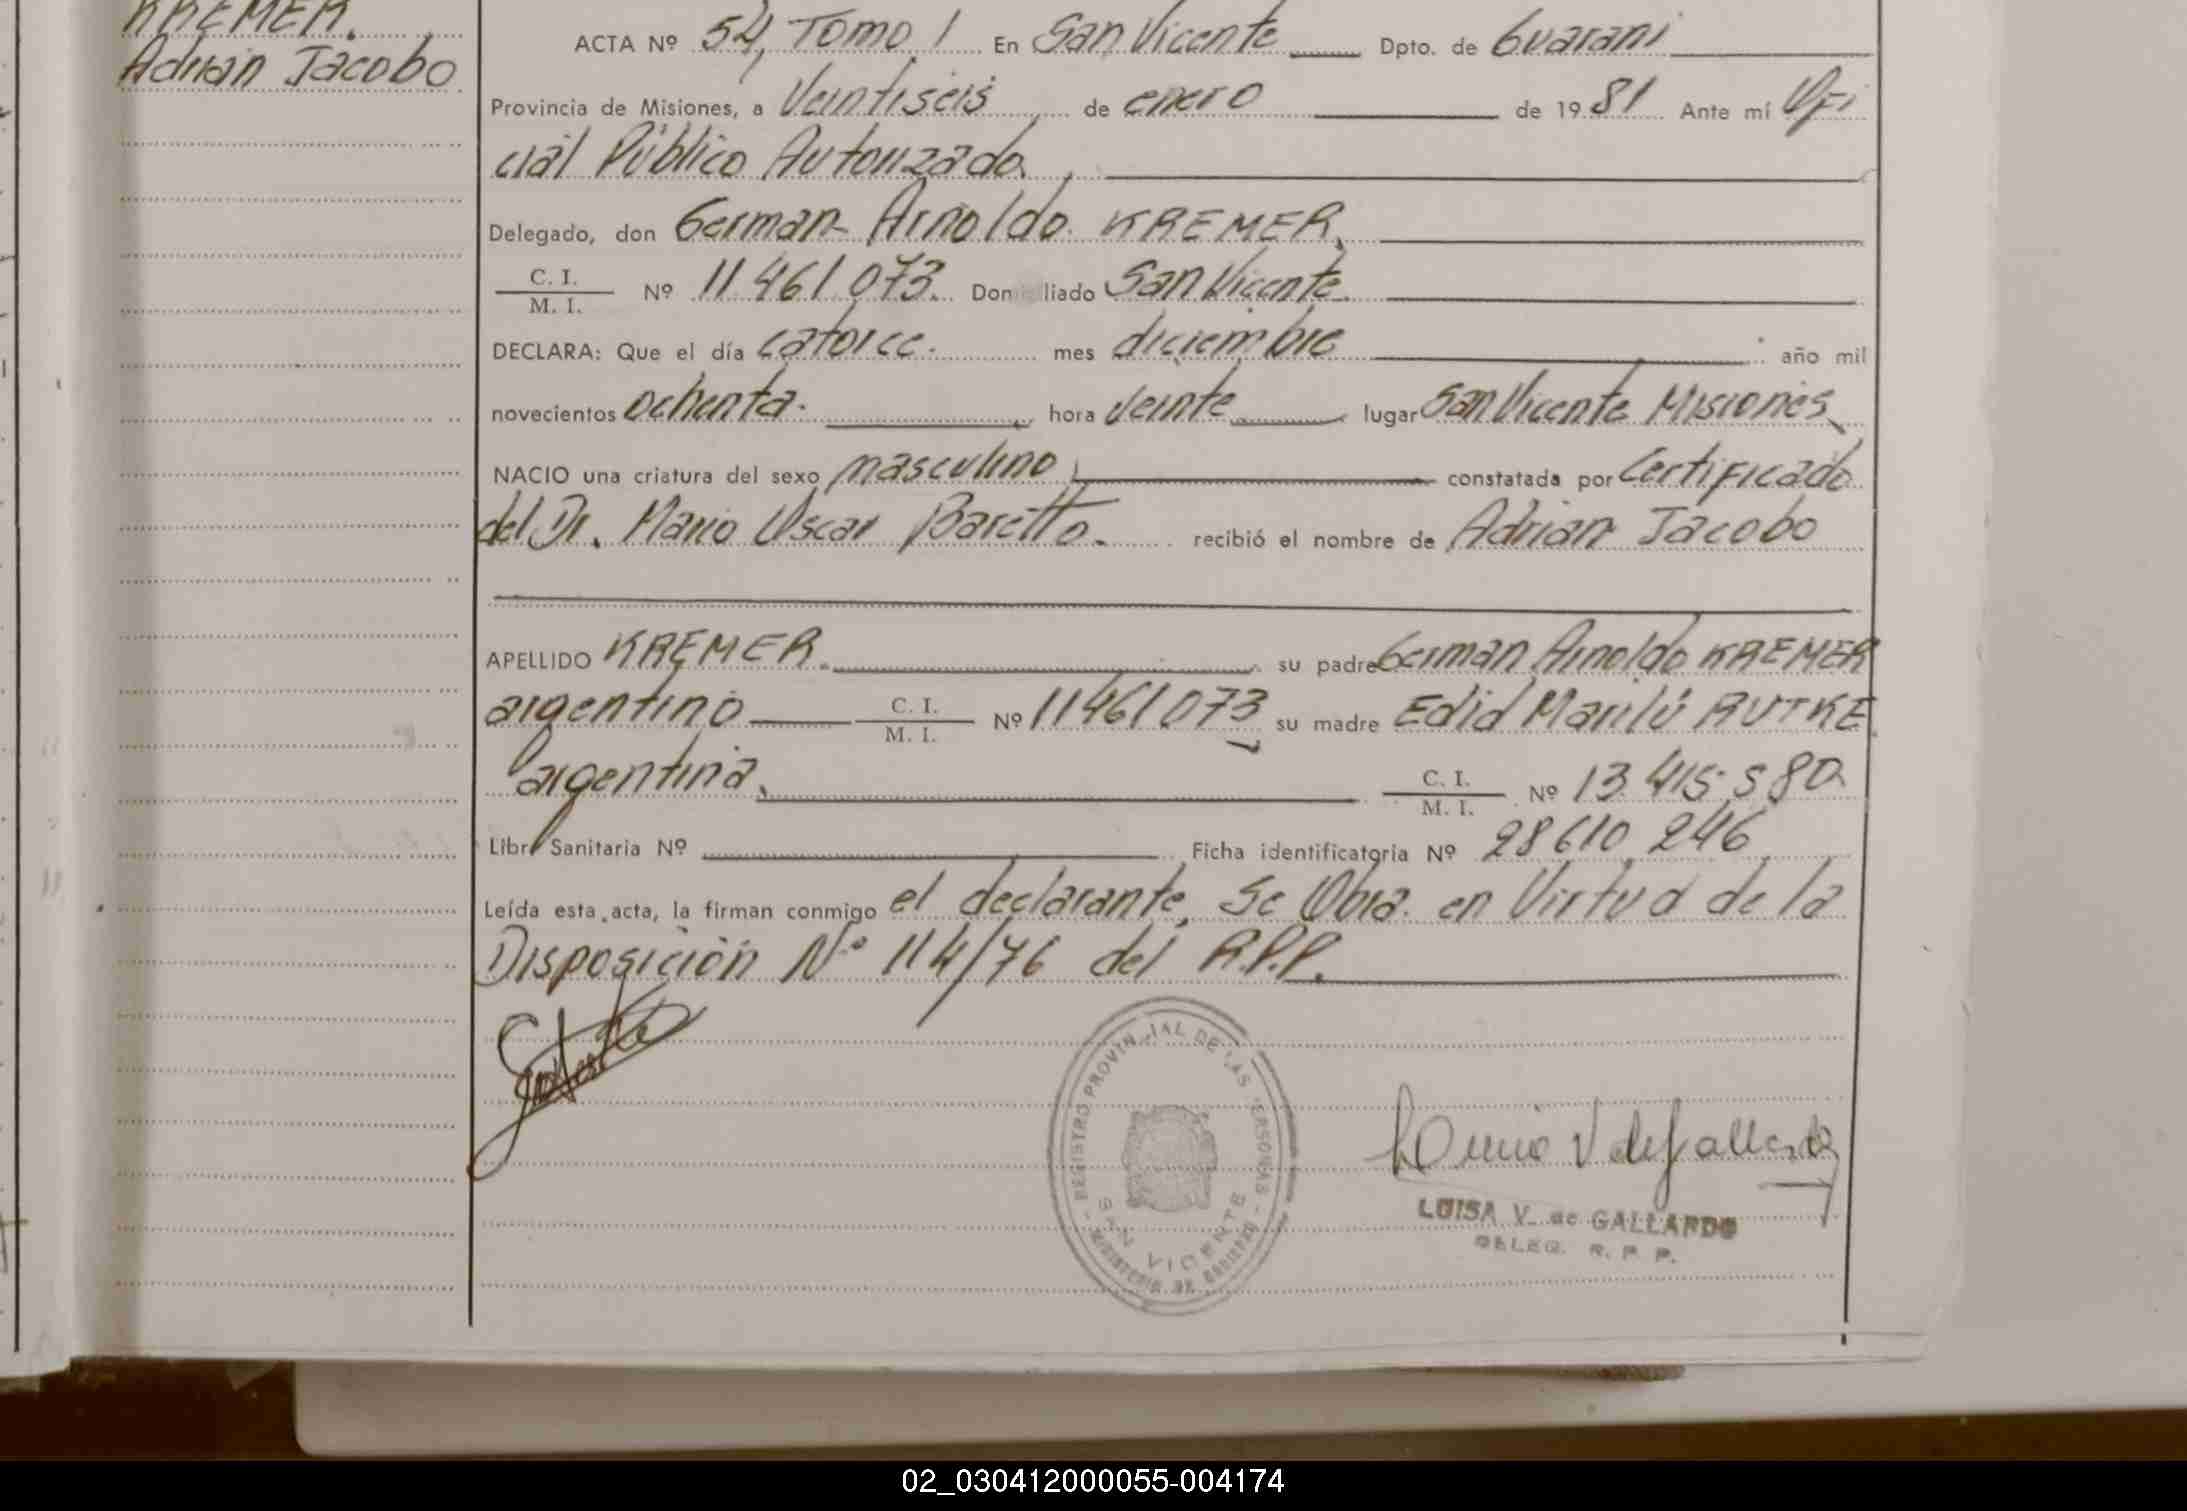 KREMER.
Adrian Jacobo
ACTA Nº 54, Tomo 1 En San Vicente Dpto. de Guarani
Provincia de Misiones, a Veintiseis de enero de 1981 Ante mí Ofi
cial Público Autorizado
Delegado, don German Arnoldo KREMER,
C. I.
M. I. Nº 11461073. Domiciliado San Vicente
DECLARA: Que el día catorce. mes diciembre año mil
novecientos ochenta. hora veinte lugar San Vicente Misiones,
NACIO una criatura del sexo masculino, constatada por Certificado
del Dr. Mario Oscar Baretto. recibió el nombre de Adrian Jacobo
APELLIDO KREMER. su padre German Arnoldo KREMER
argentino C. I.
M. I. Nº 11461073 su madre Edid Marilú RUTKE
argentina, C. I.
M. I. Nº 13.415.580
Libr Sanitaria Nº Ficha identificatoria Nº 28610.246
Leída esta acta, la firman conmigo el declarante, Se Obra en Virtud de la
Disposición Nº 114/76 del R.P.P.
REGISTRO PROVINCIAL DE LAS PERSONAS
SAN VICENTE
MINISTERIO DE GOBIERNO
Luisa V de Gallardo
LUISA V. de GALLARDO
DELEG. R. P. P.
02_030412000055-004174